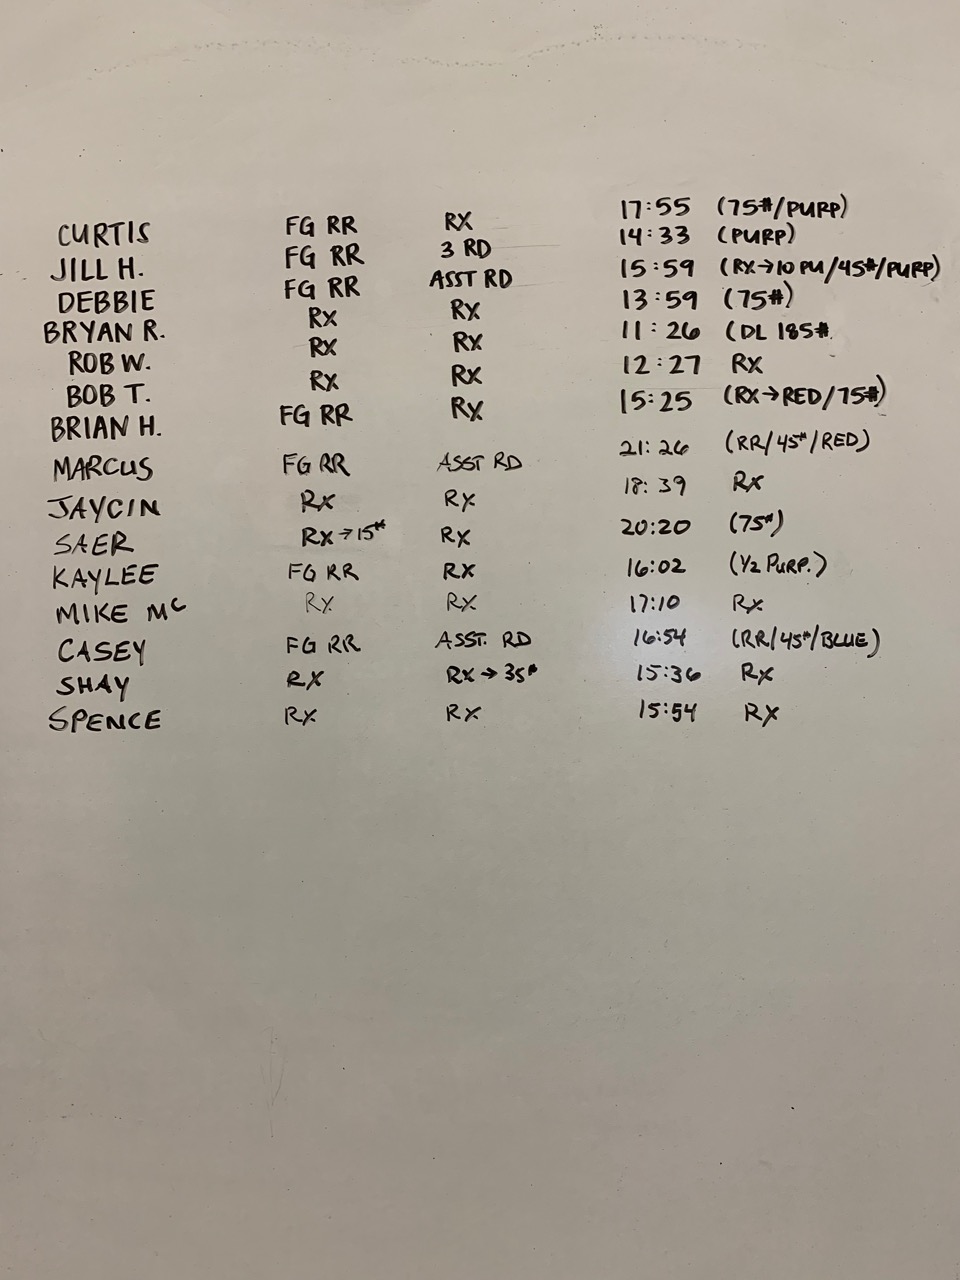 CURTIS FG RR RX 17:55 (75#/PURP)
JILL H. FG RR 3 RD 14:33 (PURP)
DEBBIE FG RR ASST RD 15:59 (RX→10 PU/45#/PURP)
BRYAN R. RX RX 13:59 (75#)
ROB W. RX RX 11:26 (DL 185#
BOB T. RX RX 12:27 RX
BRIAN H. FG RR RX 15:25 (RX→RED/75#)
MARCUS FG RR ASST RD 21:26 (RR/45#/RED)
JAYCIN RX RX 18:39 RX
SAER RX→15# RX 20:20 (75#)
KAYLEE FG RR RX 16:02 (1/2 PURP.)
MIKE MC RX RX 17:10 RX
CASEY FG RR ASST. RD 16:54 (RR/45#/BLUE)
SHAY RX RX→35# 15:36 RX
SPENCE RX RX 15:54 RX